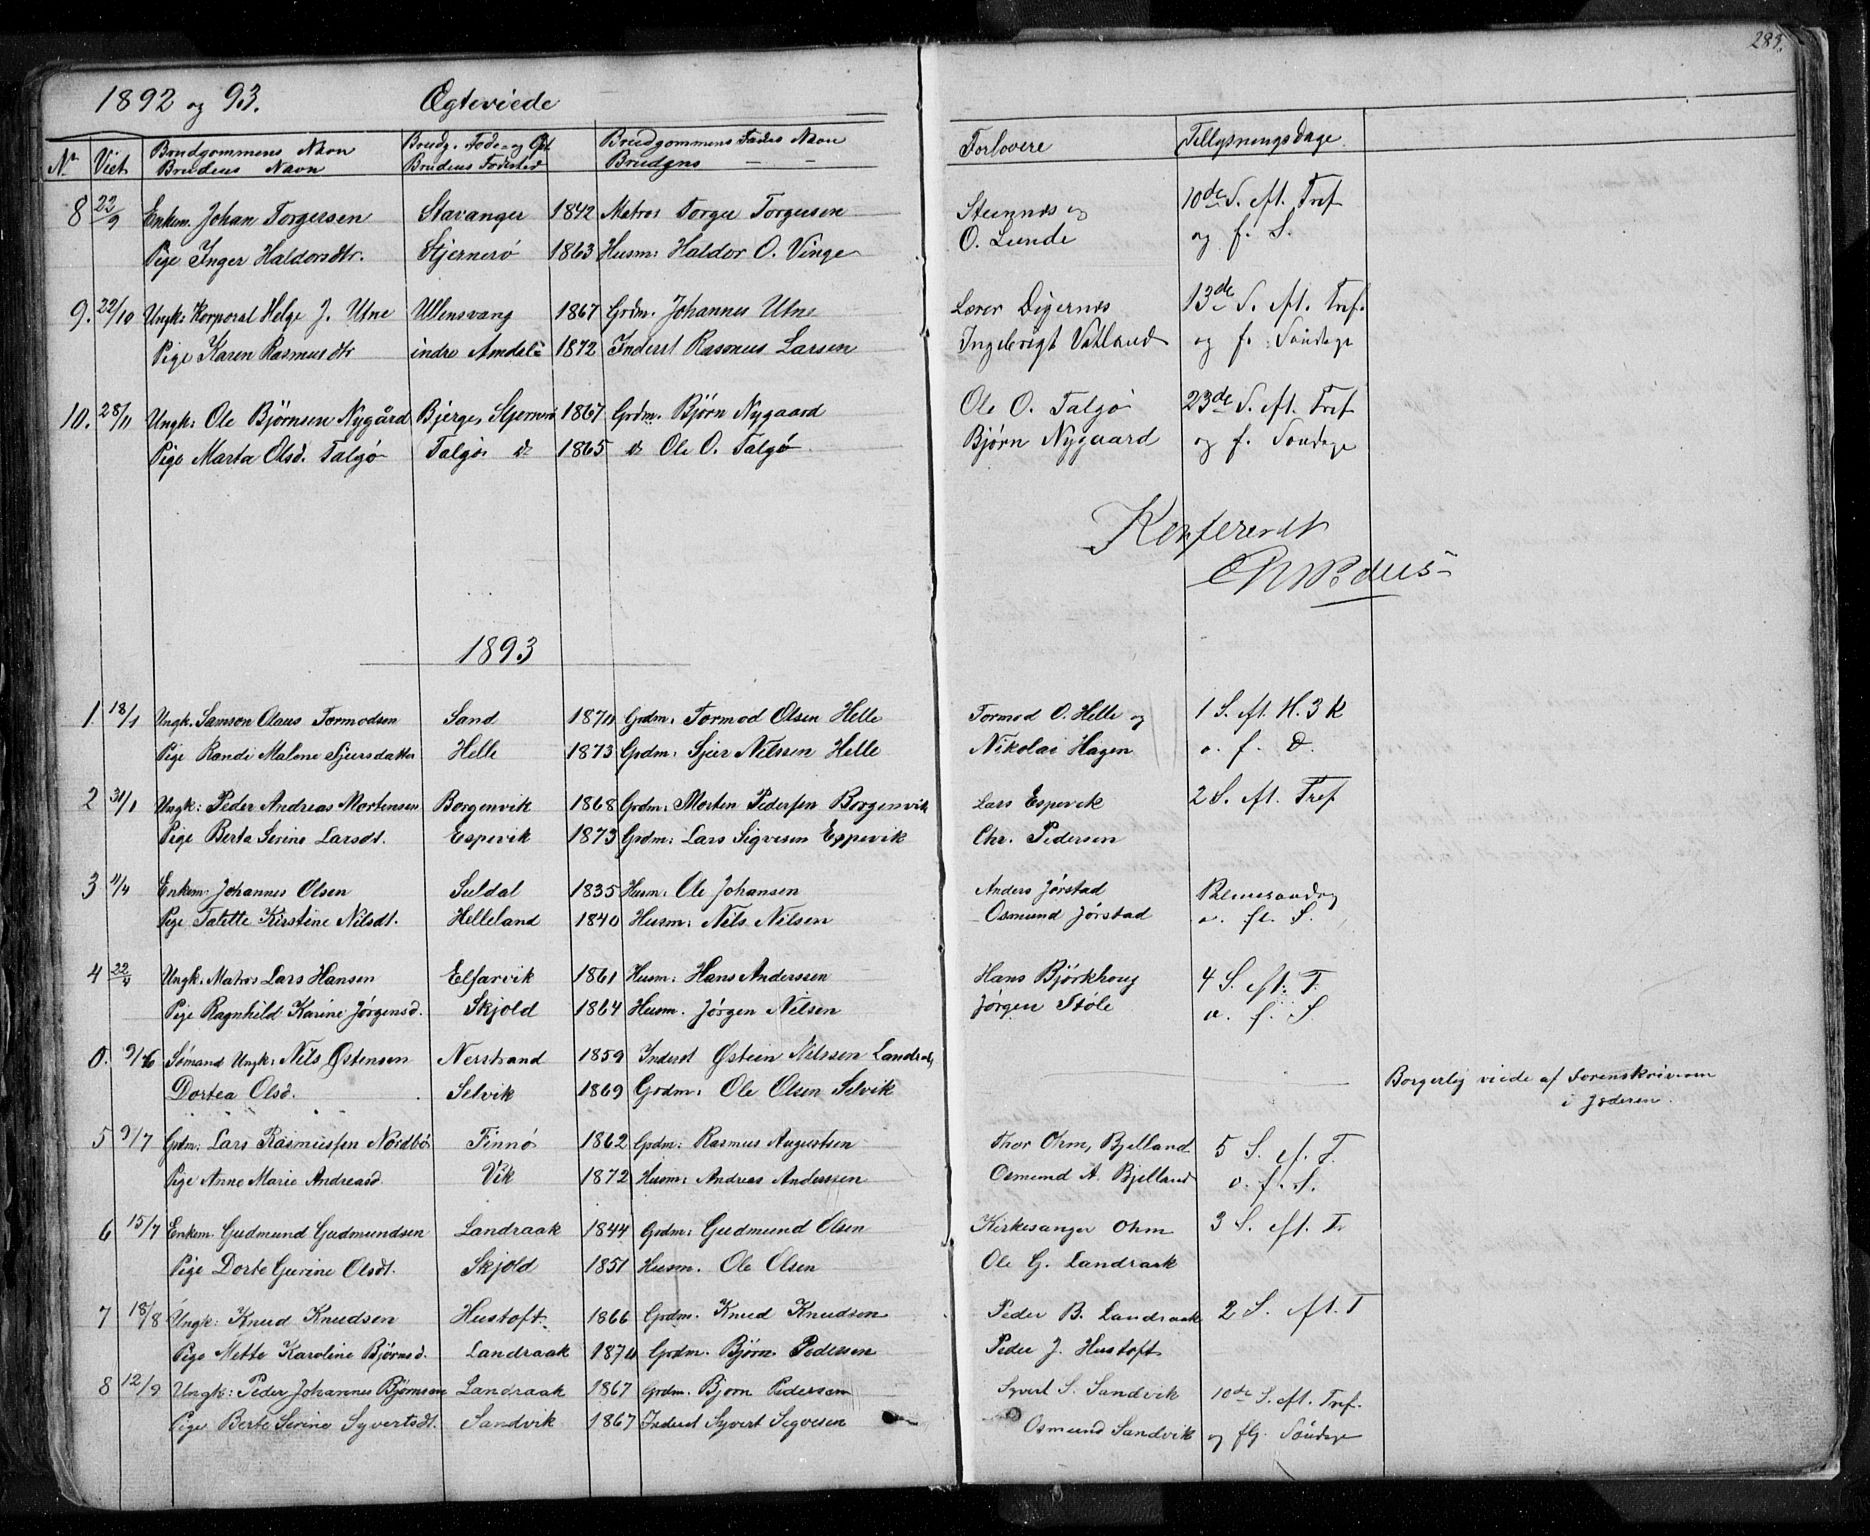 283.
1892 og 93. Ægteviede
Nr Viet Brudgommens Navn Brudg. Føde- og Brudgommens Faders Navn Forlovere Tillysningsdage
Brudens Navn Brudens Fødested Brudens — —
8 22/9 Enkem. Johan Torgersen Stavanger 1842 Matros Torger Torgersen Steinnes og 10de S. eft. Tref
Pige Inger Haldorsdtr. Stjernerö 1863 Husm: Haldor O. Vinge O. Lunde og f. S.
9. 22/10 Ungk: Korporal Helge J. Utne Ullensvang 1867 Grdm. Johannes Utne Lærer Digernes 13de S. eft. Tref.
Pige Karen Rasmusdtr indre Amdal 1872 Inderst Rasmus Larsen Ingebrigt Vatland og f. Söndage
10. 28/11 Ungk: Ole Bjørnsen Nygård Bjerge, Stjernerö 1867 Grdm. Bjørn Nygaard Ole O. Talgö 23de S. eft. Tref
Pige Marta Olsd. Talgö Talgö do 1865 do Ole O. Talgö Bjørn Nygaard og f. Söndage
Konfereret
1893
1 18/1 Ungk. Samson Olaus Tormodsen Sand 1870 Grdm: Tormod Olsen Helle Tormod O. Helle og 1 S. eft. H. 3 K
Pige Randi Malene Sjursdatter Helle 1873 Grdm: Sjur Nilssen Helle Nikolai Hagen o. f. D.
2 31/1 Ungk: Peder Andreas Mortensen Borgenvik 1868 Grdm: Morten Pedersen Borgenvik Lars Espevik 2 S. eft. Tref
Pige Berta Serine Larsdt. Espevik 1873 Grdm: Lars Sigvesen Espevik Chr. Pedersen
3 4/4 Enkem. Johannes Olsen Suldal 1835 Husm: Ole Johansen Anders Jørstad Palmesøndag
Pige Talette Kirstine Nilsdt. Helleland 1840 Husm: Nils Nilsen Osmund Jørstad o. fl. S.
4 22/4 Ungk: Matros Lars Hansen Elfarvik 1861 Husm: Hans Anderssen Hans Björkhoug 4 S. eft: T.
Pige Ragnhild Karine Jørgensd. Skjold 1864 Husm. Jörgen Nilsen Jørgen Støle o. f. S
0. 9/6 Sømand Ungk: Nils Østensen Nerstrand 1859 Inderst Østein Nilssen Landraak
Dortea Olsd. Selvik 1869 Grdm: Ole Olsen Selvik Borgerlig viede af Sorenskriveren
i Jæderen.
5 9/7 Grdm: Lars Rasmussen Nordbö Finnö 1862 Grdm: Rasmus Augustsen Thor Ohm, Bjelland 5 S. ef. T.
Pige Anne Marie Andreasd. Vik 1872 Husm: Andreas Anderssen Osmund A. Bjelland o. f. S.
6 15/7 Enkem. Gudmund Gudmundsen Landraak 1844 Grdm: Gudmund Olsen Kirkesanger Ohm 3 S. eft. T.
Pige Dorte Gurine Olsdt. Skjold 1851 Husm. Ole Olsen Ole G. Landraak
7 18/8 Ungk: Knud Knudsen Hustoft. 1866 Grdm. Knud Knudsen Peder B. Landraak 2 S. eft. T
Pige Mette Karoline Bjørnsd. Landraak 1870 Grdm. Bjørn Pedersen Peder J. Hustoft
8 12/9 Ungk: Peder Johannes Bjørnsen Landraak 1867 Grdm. Bjørn Pedersen Syvert S. Sandvik 10de S. eft. Tref.
Pige Berte Serine Syvertsdt. Sandvik 1867 Inderst Syvert Segvesen Osmund Sandvik og flg. Söndage